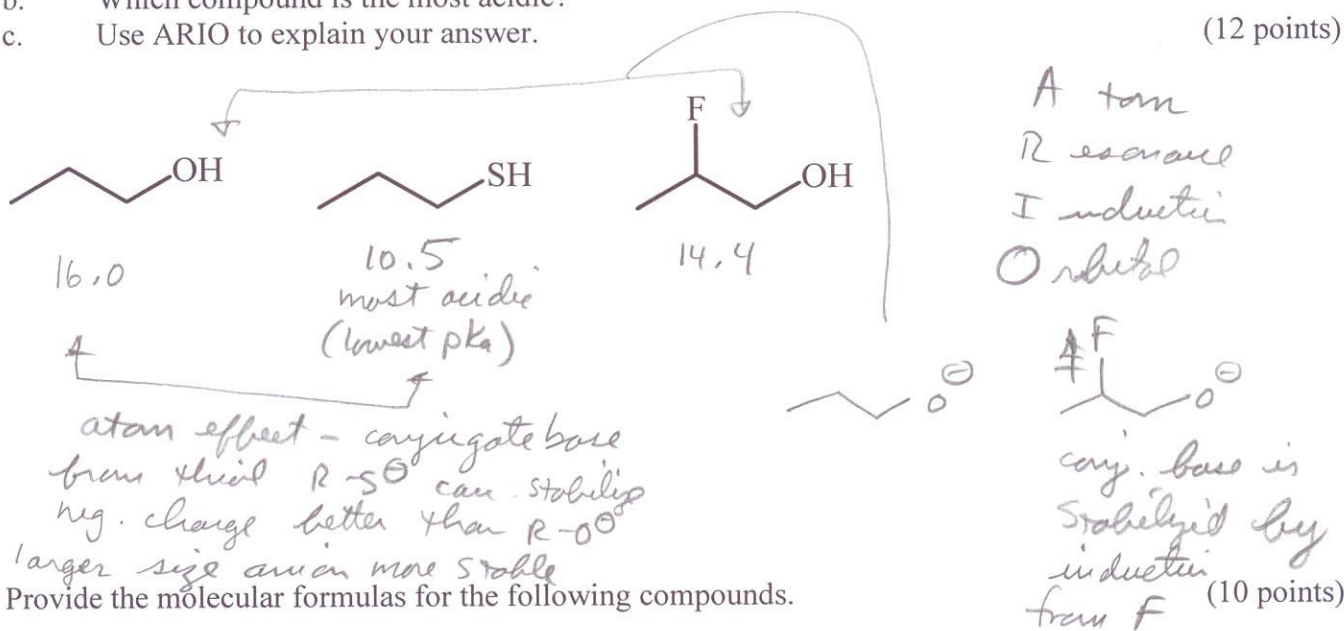 b. Which compound is the most acidic?
c. Use ARIO to explain your answer. (12 points)
A tom
R esonance
I nduction
O rbital
OH
SH
F
OH
16.0
10.5
14.4
most acidic
(lowest pKa)
F
O ⊖
O ⊖
atom effect - conjugate base
from thiol R-S⊖ can stabilize
neg. charge better than R-O⊖
larger size anion more stable
conj. base is
stabilized by
induction
from F
Provide the molecular formulas for the following compounds. (10 points)